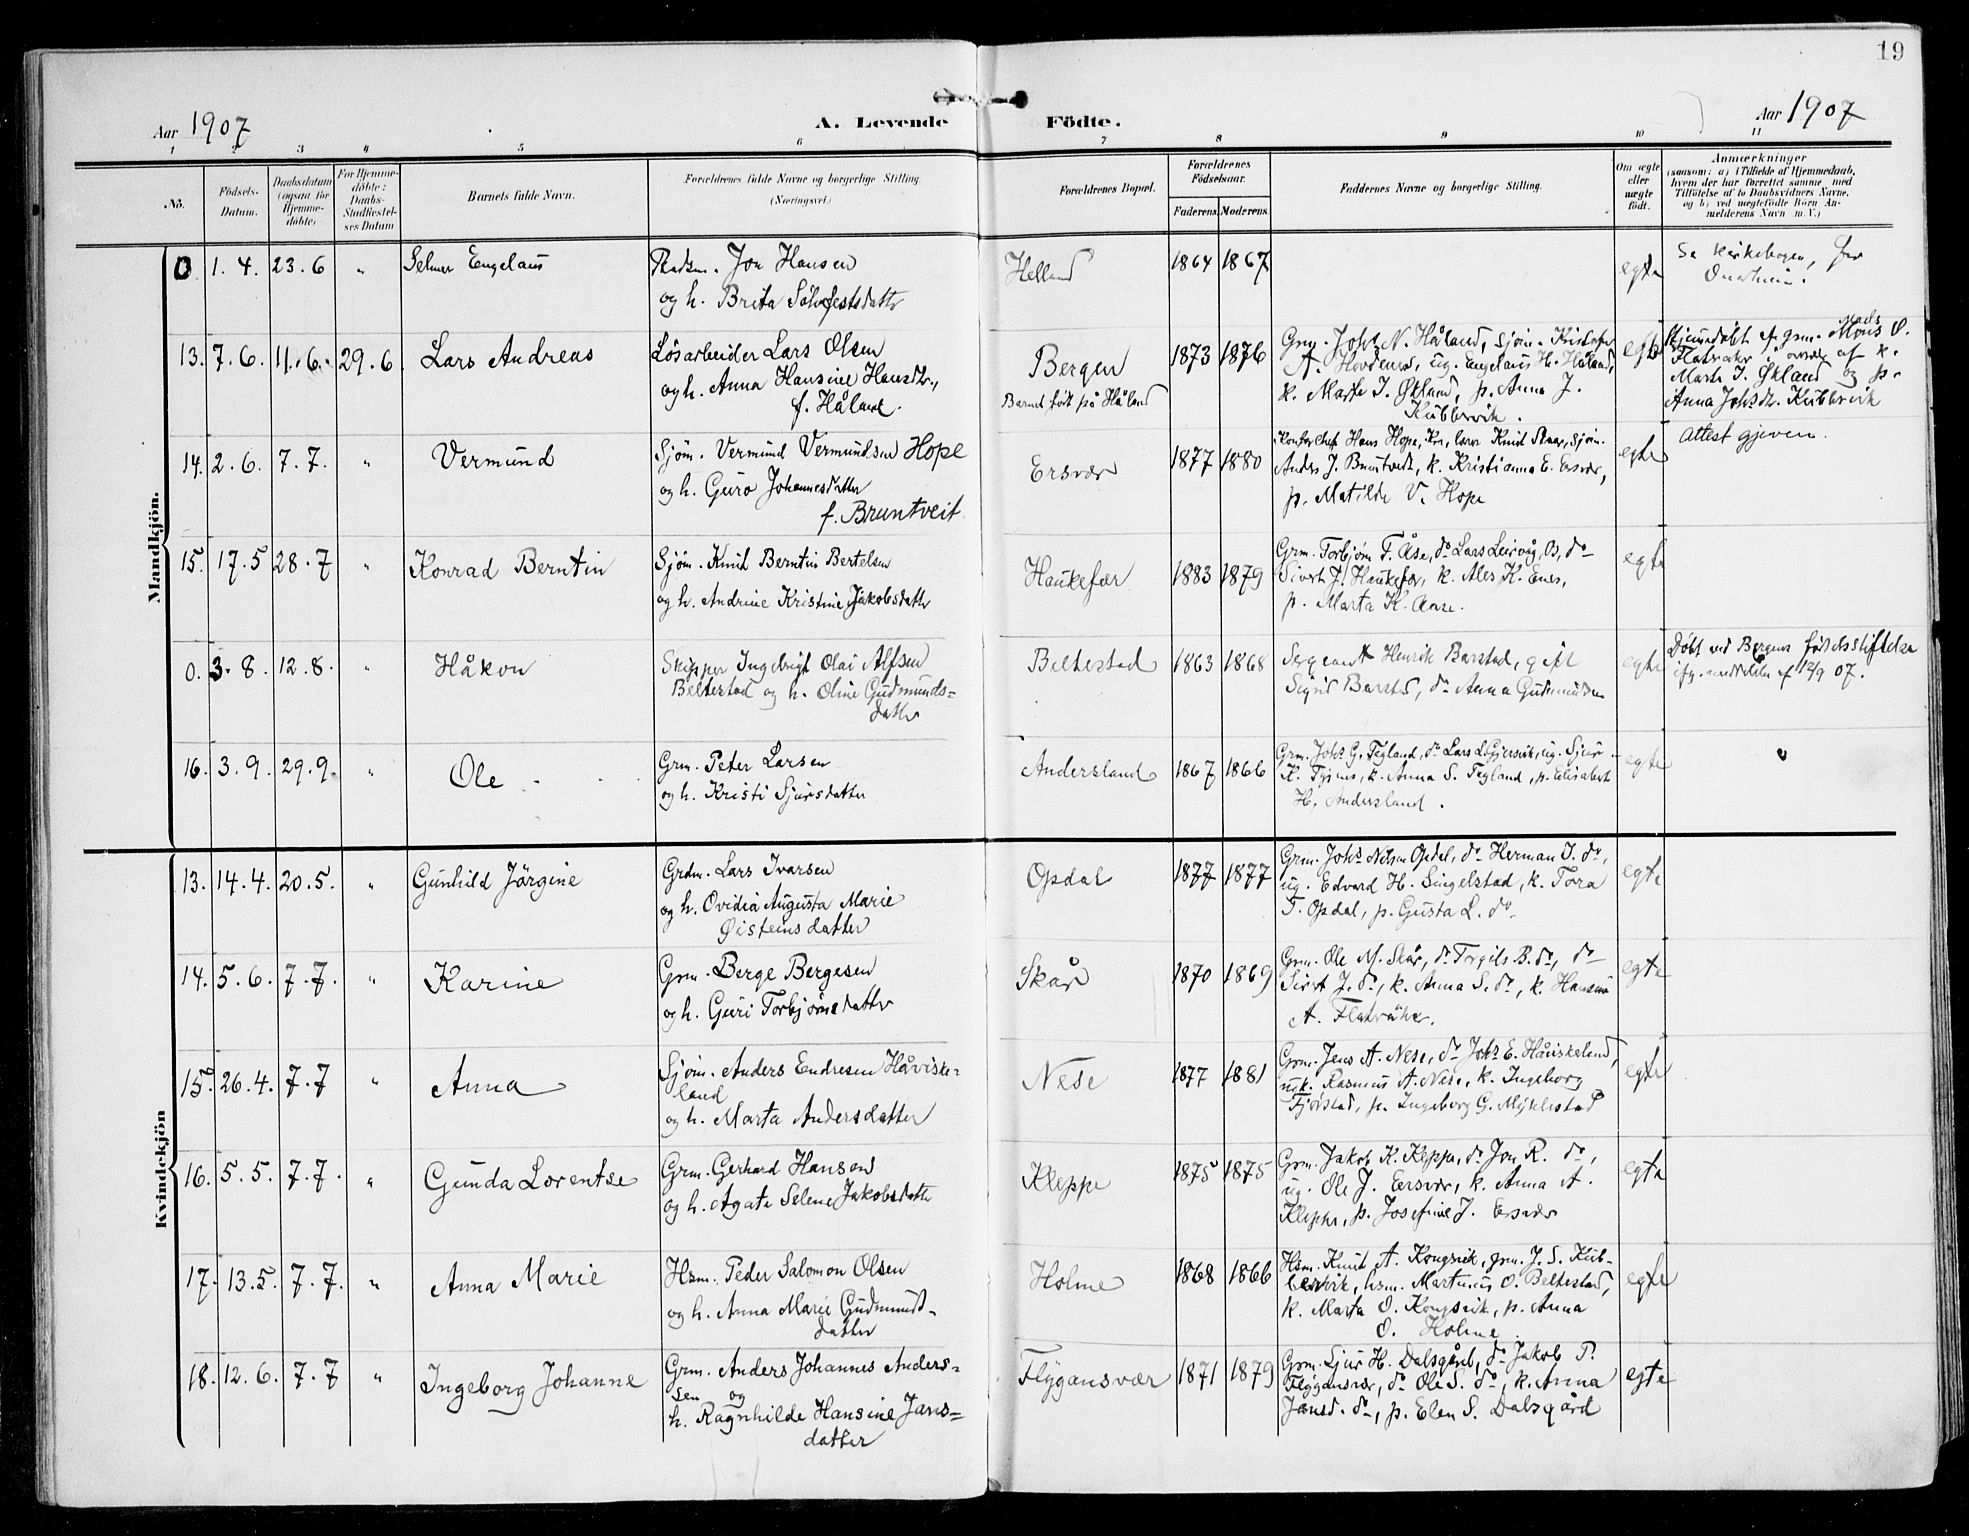 19
Aar 1907
A. Levende Födte.
Aar 1907
1 2 3 4 5 6 7 8 9 10 11
No.
Födsels-Datum.
Daabsdatum (ogsaa for Hjemme-döbte)
For Hjemme-döbte: Daabs-Stadfæstel-ses Datum
Barnets fulde Navn.
Forældrenes fulde Navne og borgerlige Stilling.
(Næringsvei.)
Forældrenes Bopæl.
Forældrenes Födselsaar.
Faderens. Moderens.
Faddernes Navne og borgerlige Stilling.
Om ægte eller uægte födt.
Anmærkninger
(saasom: a) i Tilfælde af Hjemmedaab,
hvem der har forrettet samme med
Tilföielse af to Daabsvidners Navne,
og b) ved uægtefödte Börn An-
melderens Navn m. V.)
Mandkjön.
0 1. 4. 23. 6 " Selmer Engelaus
Jon Hansen
og h. Brita Sølfestsdatter
Helland 1864 1867 egte
Se kirkebogen for
Onarheim.
13. 7. 6. 11. 6. 29. 6 Lars Andreas
Løsarbeider Lars Olsen
og h. Anna Hansine Hansdtr.,
f. Håland.
Bergen
Barnet født på Håland
1873 1876
Grm. Johs N. Håland, Sjøm. Kristofer
A. Hovdenes, ug. Engelaus H. Håland,
k. Marta I. Økland, p. Anna J.
Kubbervik.
egte
Hjemmedøbt af grm. Mons O.
Mads
Flatråker i overvær af k.
Marta I. Økland og p.
Anna Johsdtr. Kubbervik
14. 2. 6. 7. 7. " Vermund
Sjøm. Vermund Vermundsen Hope
og h. Guro Johannesdatter
f. Bruntveit.
Ersvær 1877 1880
Hans Hope, lærer Knut Skaar, sjøm.
Anders J. Bruntveit, k. Kristianna E. Ersvær,
p. Matilde V. Hope
egte
Attest gjeven.
15. 17. 5 28. 7 " Konrad Berntin
Sjøm. Knut Berntin Bertelsen
og h. Andrine Kristine Jakobsdatter
Haukefær 1883 1879
Grm. Torbjørn T. Åse, do Lars Leirvåg, B, do
Sivert J. Haukefær, k. Ales K. Enes,
p. Marta K. Aase.
egte
0. 3. 8. 12. 8. " Håkon
Skipper Ingebrigt Olai Alfsen
Beltestad og h. Oline Gudmunds=
datter
Beltestad 1863 1868
Sergeant Henrik Barstad, gift
Sigrid Barstad, do Anna Gudmundsen
egte
Døbt ved Bergens fødselsstiftelse
ifg. meddelelse af 12/9 07.
16. 3. 9. 29. 9. " Ole
Grm. Peter Larsen
og h. Kristi Sjursdatter
Andersland 1867 1866
Grm. Johs G. Tegland, do Lars L. Gjersvik, ug. Sjur
K. Tysnes, k. Anna S. Tegland, p. Elisabert
H. Andersland.
egte
Kvindekjön
13. 14. 4. 20. 5. " Gunhild Jørgine
Grdm. Lars Ivarsen
og h. Ovidia Augusta Marie
Øisteinsdatter
Opdal 1877 1877
Grm. Johs Nilsen Opdal, do Herman I. do,
ug. Edvard H. Singelstad, k. Tora
T. Opdal, p. Gusta L. do
egte
14. 5. 6. 7. 7. " Karine
Grm. Berge Bergesen
og h. Guri Torbjørnsdatter
Skår 1870 1869
Grm. Ole M. Skår, do Torgils B. do, do
Sivert J. do, k. Anna S. do, k. Hansine
A. Flatråker.
egte
15. 26. 4. 7. 7 " Anna
Sjøm. Anders Endresen Håviske-
land
og h. Marta Andersdatter
Nese 1877 1881
Grm. Jens A. Nese, do Johs E. Håviskeland,
ugk. Rasmus A. Nese, k. Ingeborg
Fjørstad, p. Ingeborg G. Myklestad
egte
16. 5. 5. 7. 7. " Gunda Lorentse
Grm. Gerhard Hansen
og h. Agata Seline Jakobsdatter
Kleppe 1875 1875
Grm. Jakob K. Kleppe, do Jon R. do,
ug. Ole J. Eersvær, k. Anna A.
Kleppe, p. Josefine J. Ersvær
egte
17. 13. 5. 7. 7. " Anna Marie
Hsm. Peder Salomon Olsen
og h. Anna Marie Gudmunds-
datter
Holme 1868 1866
Hsm. Knut A. Kongsvik, grm. J. S. Kub-
bervik, hsm. Martinus O. Beltestad,
k. Marta O. Kongsvik, p. Anna
O. Holme.
egte
18. 12. 6. 7. 7 " Ingeborg Johanne
Grm. Anders Johannes Anders=
sen og
h. Ragnhilde Hansine Jans=
datter
Flygansvær 1871 1879
Grm. Sjur H. Dalsgård, do Jakob P.
Flygansvær, do Ole S. do, k. Anna
Jansd. do, p. Elen S. Dalsgård
egte